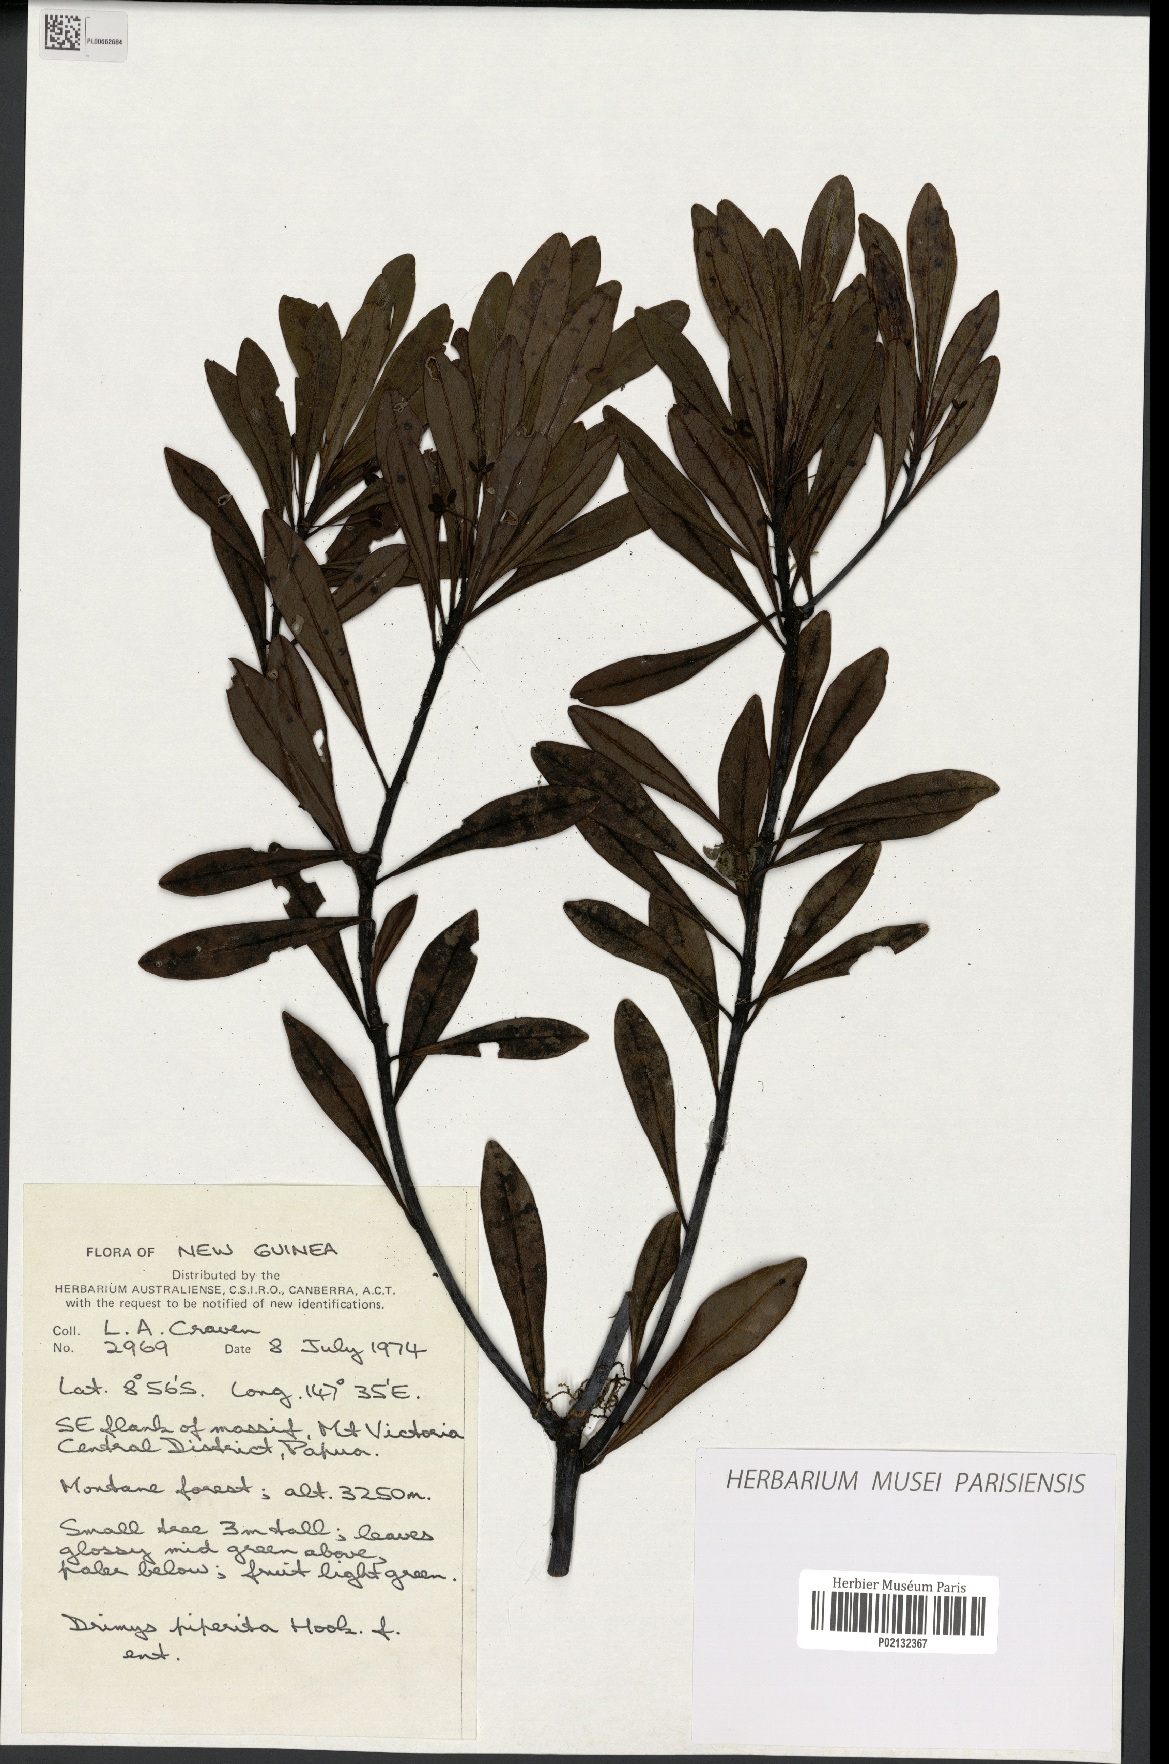 PL00662684
FLORA OF NEW GUINEA
Distributed by the
HERBARIUM AUSTRALIENSE, C.S.I.R.O., CANBERRA, A.C.T.
with the request to be notified of new identifications.
Coll. L. A. Craven
No. 2969 Date 8 July 1974
Lat. 8°56'S. Long. 147°35'E.
SE flank of massif, Mt Victoria
Central District, Papua.
Montane forest; alt. 3250m.
Small tree 3m tall; leaves
glossy mid green above,
paler below; fruit light green.
Drimys piperita Hook. f.
ent.
HERBARIUM MUSEI PARISIENSIS
Herbier Muséum Paris
P02132367